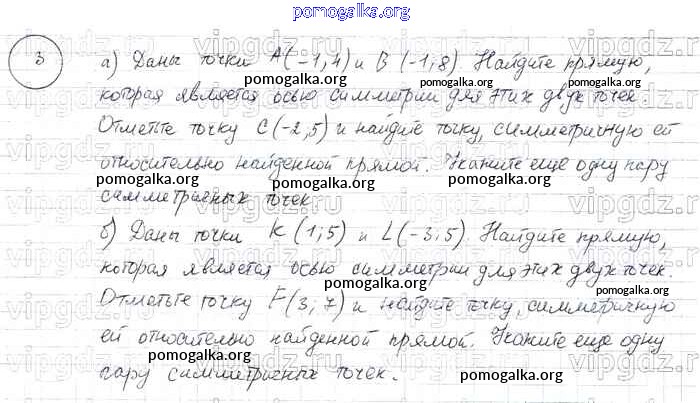 pomogalka.org
3
а) Даны точки A(-1,4) и B(-1;8). Найдите прямую,
pomogalka.org pomogalka.org
которая является осью симметрии для этих двух точек.
Отметьте точку C(-2,5) и найдите точку, симметричную ей
относительно найденной прямой. Укажите еще одну пару
pomogalka.org pomogalka.org pomogalka.org
симметричных точек
б) Даны точки K(1;5) и L(-3;5). Найдите прямую,
pomogalka.org pomogalka.org
которая является осью симметрии для этих двух точек.
Отметьте точку F(3;7) и найдите точку, симметричную
ей относительно найденной прямой. Укажите еще одну
pomogalka.org pomogalka.org
пару симметричных точек.
pomogalka.org